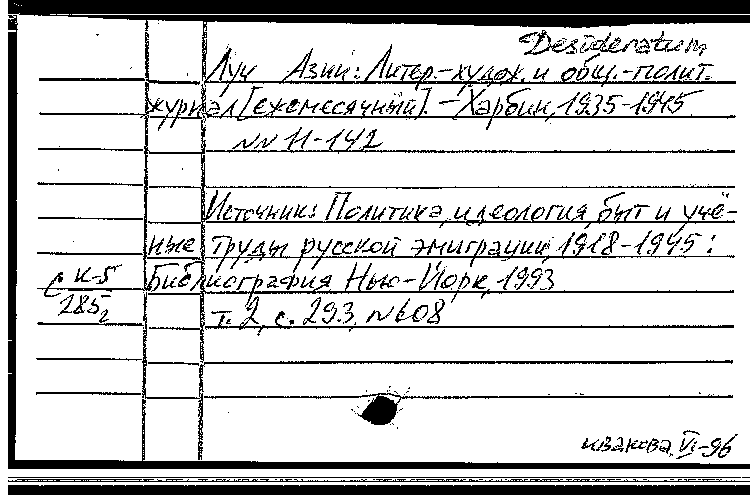 Desideratum
Луч Азии: Литер.-худож. и общ.-полит.
журнал [ежемесячный]. – Харбин, 1935-1945
NN 11-142
Источник: Политика, идеология, быт и учё-
ные труды русской эмиграции, 1918-1945:
Библиография Нью-Йорк, 1993
т. 2, с. 293, N608
с К-5
285г
иванова, VI-96